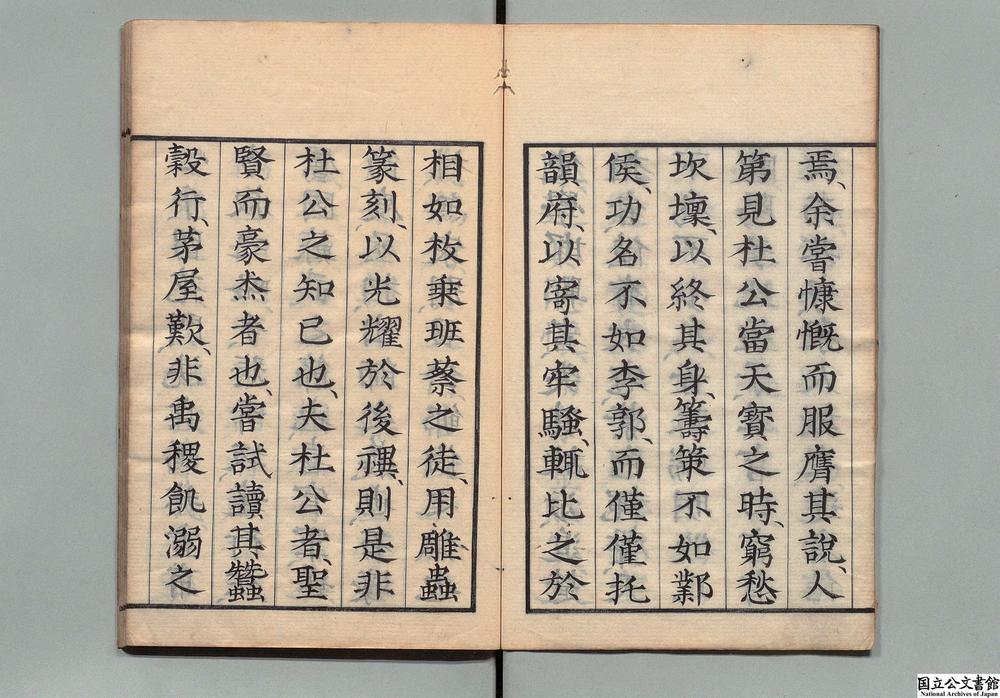 焉、余嘗慷慨而服膺其說、人
第見杜公當天寶之時、窮愁
坎壈、以終其身、籌策不如酇
侯、功名不如李郭、而僅僅托
韻府、以寄其牢騷、輒比之於
相如枚乗班蔡之徒、用雕蟲
篆刻、以光耀於後禩、則是非
杜公之知己也、夫杜公者、聖
賢而豪杰者也、嘗試讀其、蠶
穀行、茅屋歎、非禹稷飢溺之
国立公文書館
National Archives of Japan